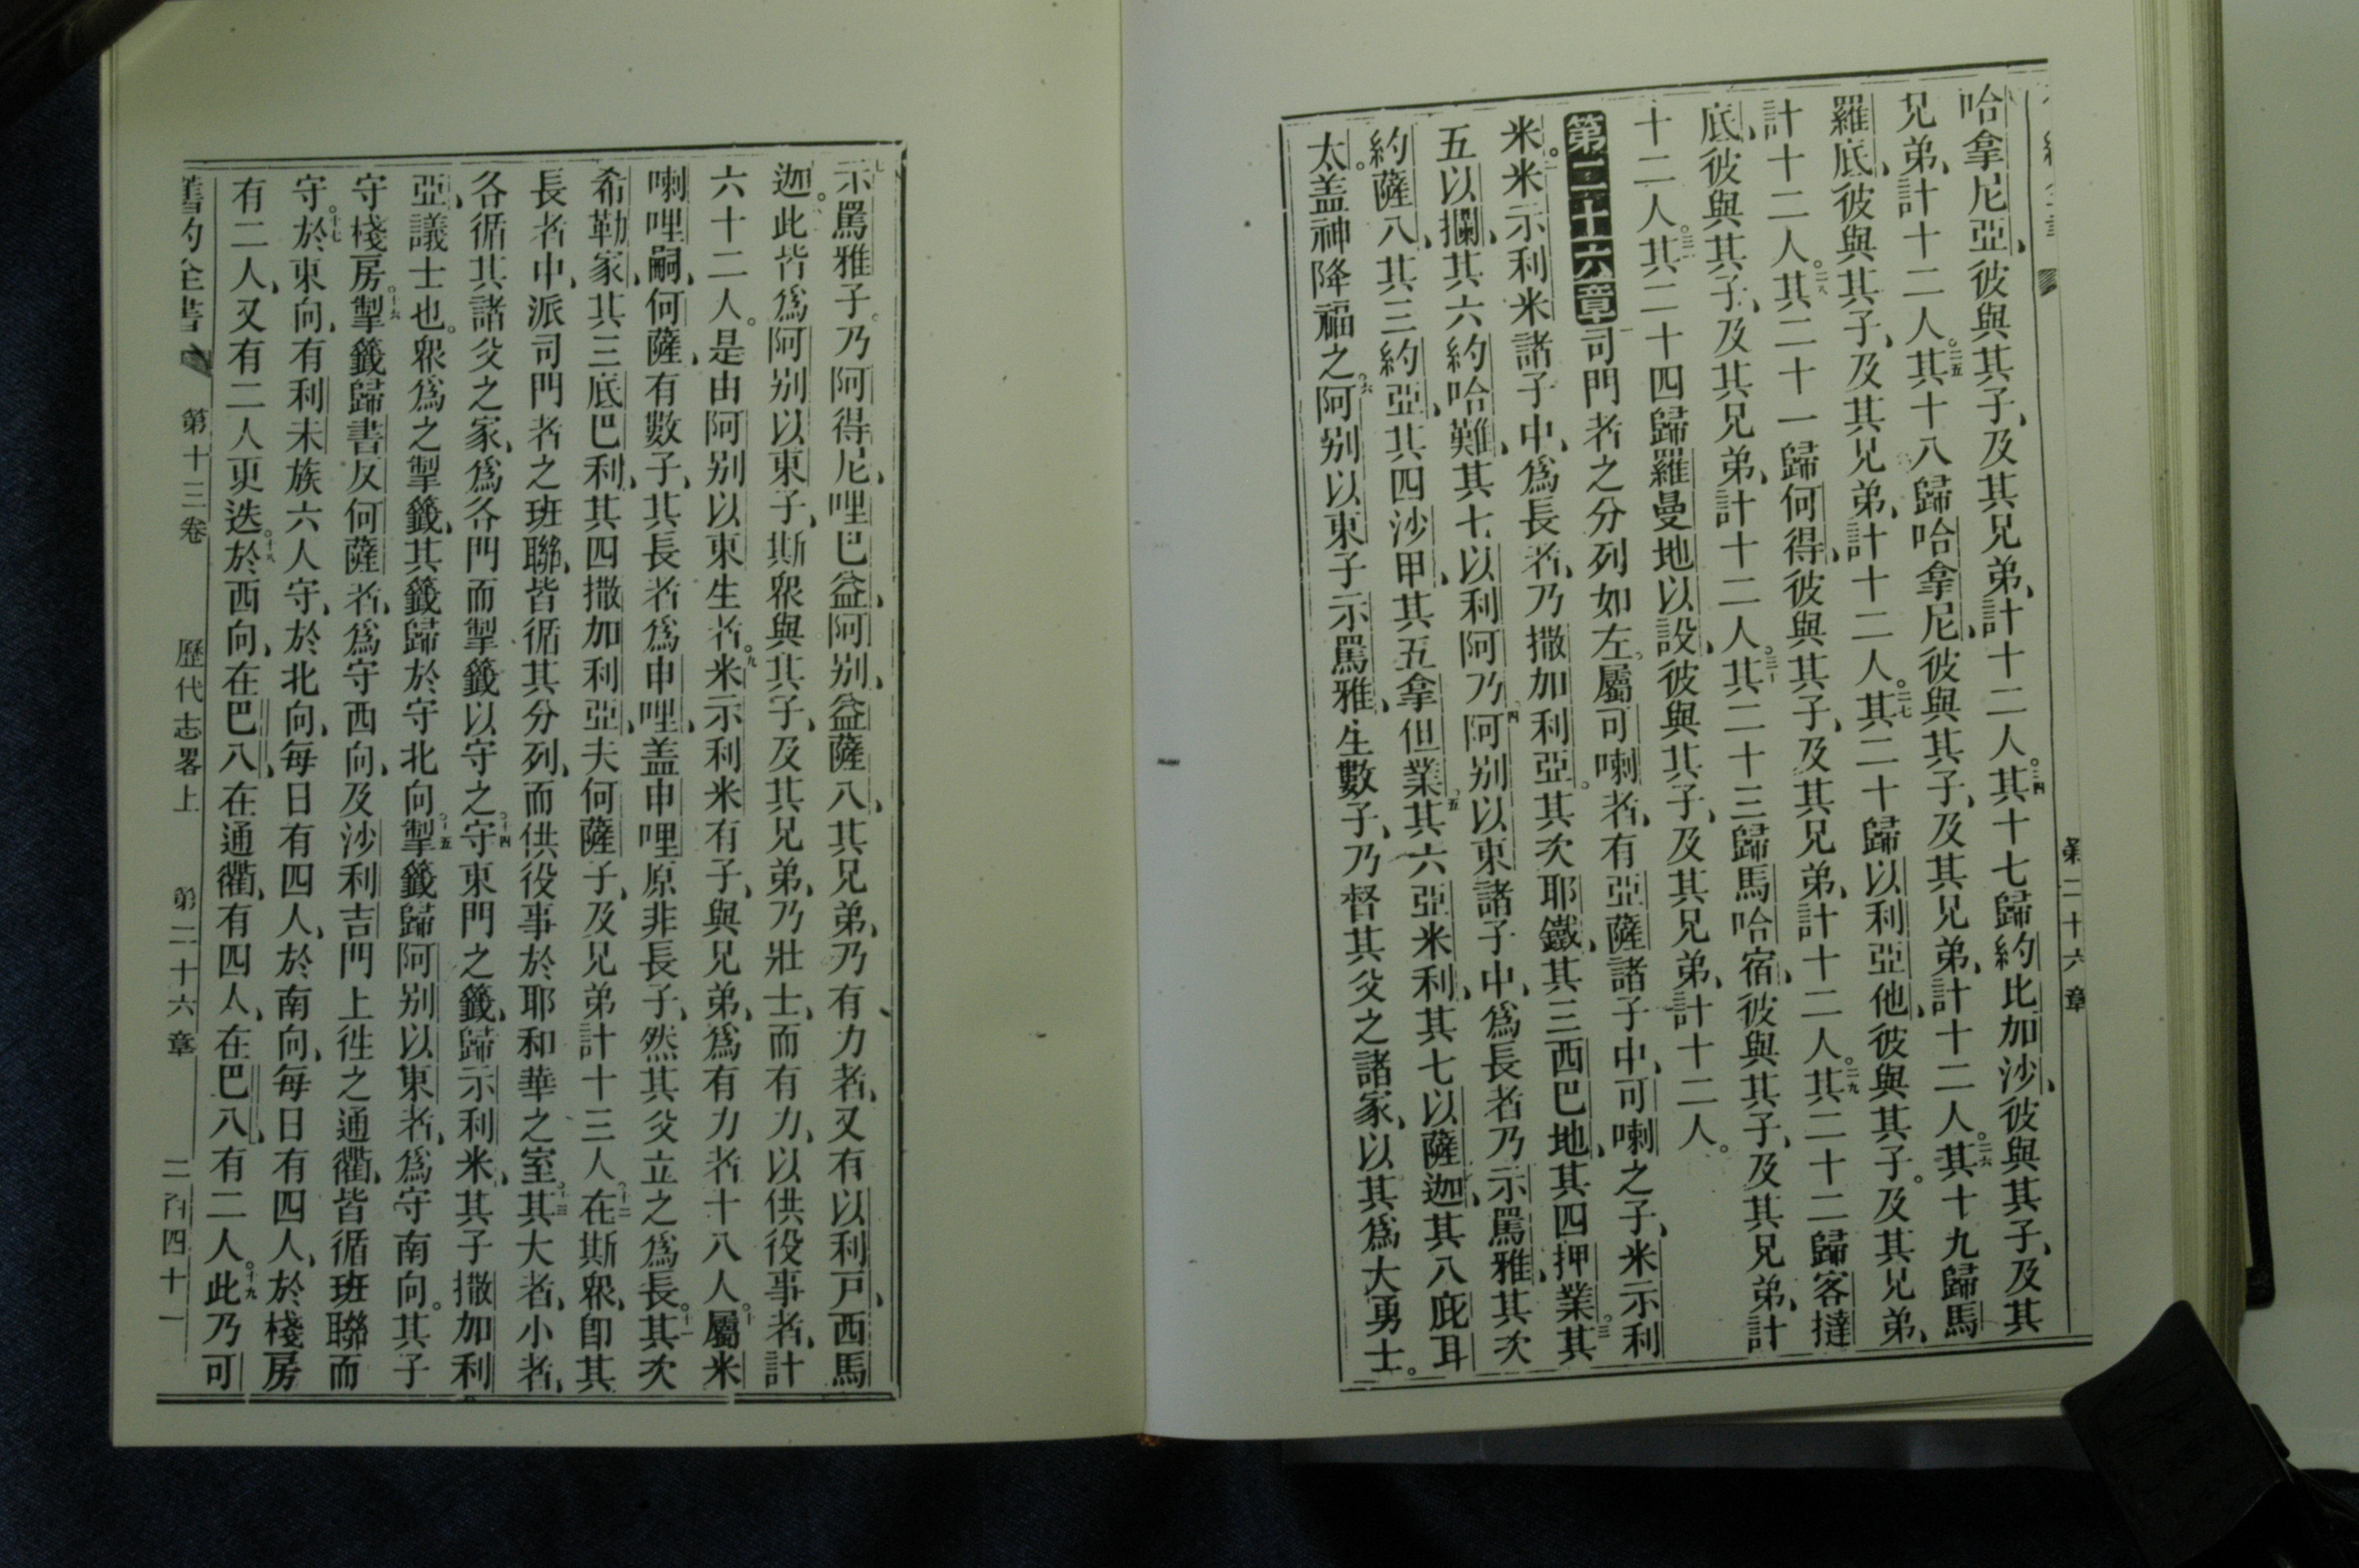 第二十六章
哈拿尼亞、彼與其子、及其兄弟、計十二人。二四其十七歸約比加沙、彼與其子、及其
兄弟、計十二人。二五其十八歸哈拿尼、彼與其子、及其兄弟、計十二人。二六其十九歸馬
羅底、彼與其子、及其兄弟、計十二人。二七其二十歸以利亞他、彼與其子。及其兄弟、
計十二人。二八其二十一歸何得、彼與其子、及其兄弟、計十二人。二九其二十二歸客撻
底、彼與其子、及其兄弟、計十二人。三十其二十三歸馬哈宿、彼與其子、及其兄弟、計
十二人。三一其二十四歸羅曼地以設、彼與其子、及其兄弟、計十二人。
第二十六章一司門者之分列如左。屬可喇者、有亞薩諸子中、可喇之子、米示利
米。二米示利米諸子中、爲長者、乃撒加利亞。其次耶鐵、其三西巴地、其四押業。三其
五以攔、其六約哈難、其七以利阿乃、四阿别以東諸子中、爲長者乃示罵雅、其次
約薩八、其三約亞、其四沙甲、其五拿但業、五其六亞米利、其七以薩迦、其八庇耳
太。盖神降福之。六阿别以東子示罵雅、生數子、乃督其父之諸家、以其爲大勇士。
七示罵雅子。乃阿得尼、哩巴益、阿别、益薩八、其兄弟、乃有力者、又有以利戸、西馬
迦。八此皆爲阿别以東子、斯眾與其子、及其兄弟、乃壯士、而有力、以供役事者、計
六十二人。是由阿别以東生者。九米示利米有子、與兄弟、爲有力者十八人。十屬米
喇哩嗣、何薩、有數子、其長者爲申哩、盖申哩原非長子、然其父立之爲長。十一其次
希勒家、其三底巴利、其四撒加利亞、夫何薩子、及兄弟計十三人。十二在斯眾、卽其
長者中、派司門者之班聯、皆循其分列、而供役事於耶和華之室。十三其大者、小者、
各循其諸父之家、爲各門而掣籤以守之。十四守東門之籤、歸示利米、其子撒加利
亞、議士也。眾爲之掣籤、其籤歸於守北向。十五掣籤歸阿别以東者、爲守南向。其子
守棧房。十六掣籤歸書反何薩者、爲守西向、及沙利吉門上徃之通衢、皆循班聯而
守。十七於東向、有利未族六人守、於北向、每日有四人、於南向、每日有四人、於棧房
有二人、又有二人更迭。十八於西向、在巴八、在通衢、有四人、在巴八、有二人。十九此乃可
舊約全書 第十三卷 歷代志畧上 第二十六章 二百四十一